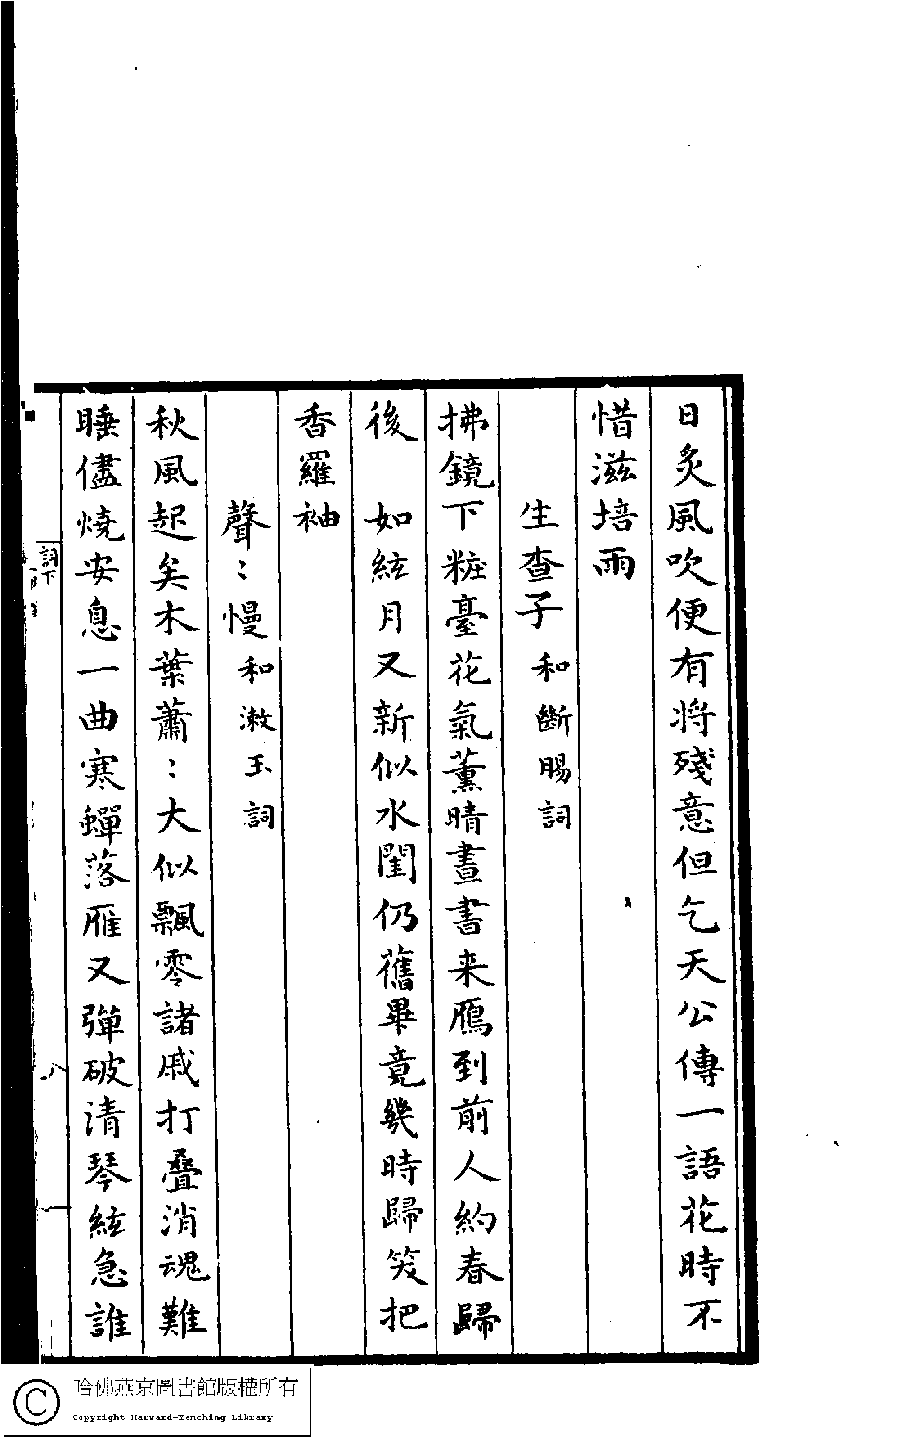 日炙風吹便有将殘意但乞天公傳一語花時不
惜滋培雨
生查子 和斷腸詞
拂鏡下粧臺花氣薰晴晝書来鴈到前人約春歸
後 如絃月又新似水閨仍舊畢竟幾時歸笑把
香羅袖
聲：慢 和漱玉詞
秋風起矣木葉蕭：大似飄零諸戚打疊消魂難
睡儘燒安息一曲寒蟬落雁又彈破清琴絃急誰
詞下
八
哈佛燕京圖書館版權所有
Copyright Harvard-Yenching Library